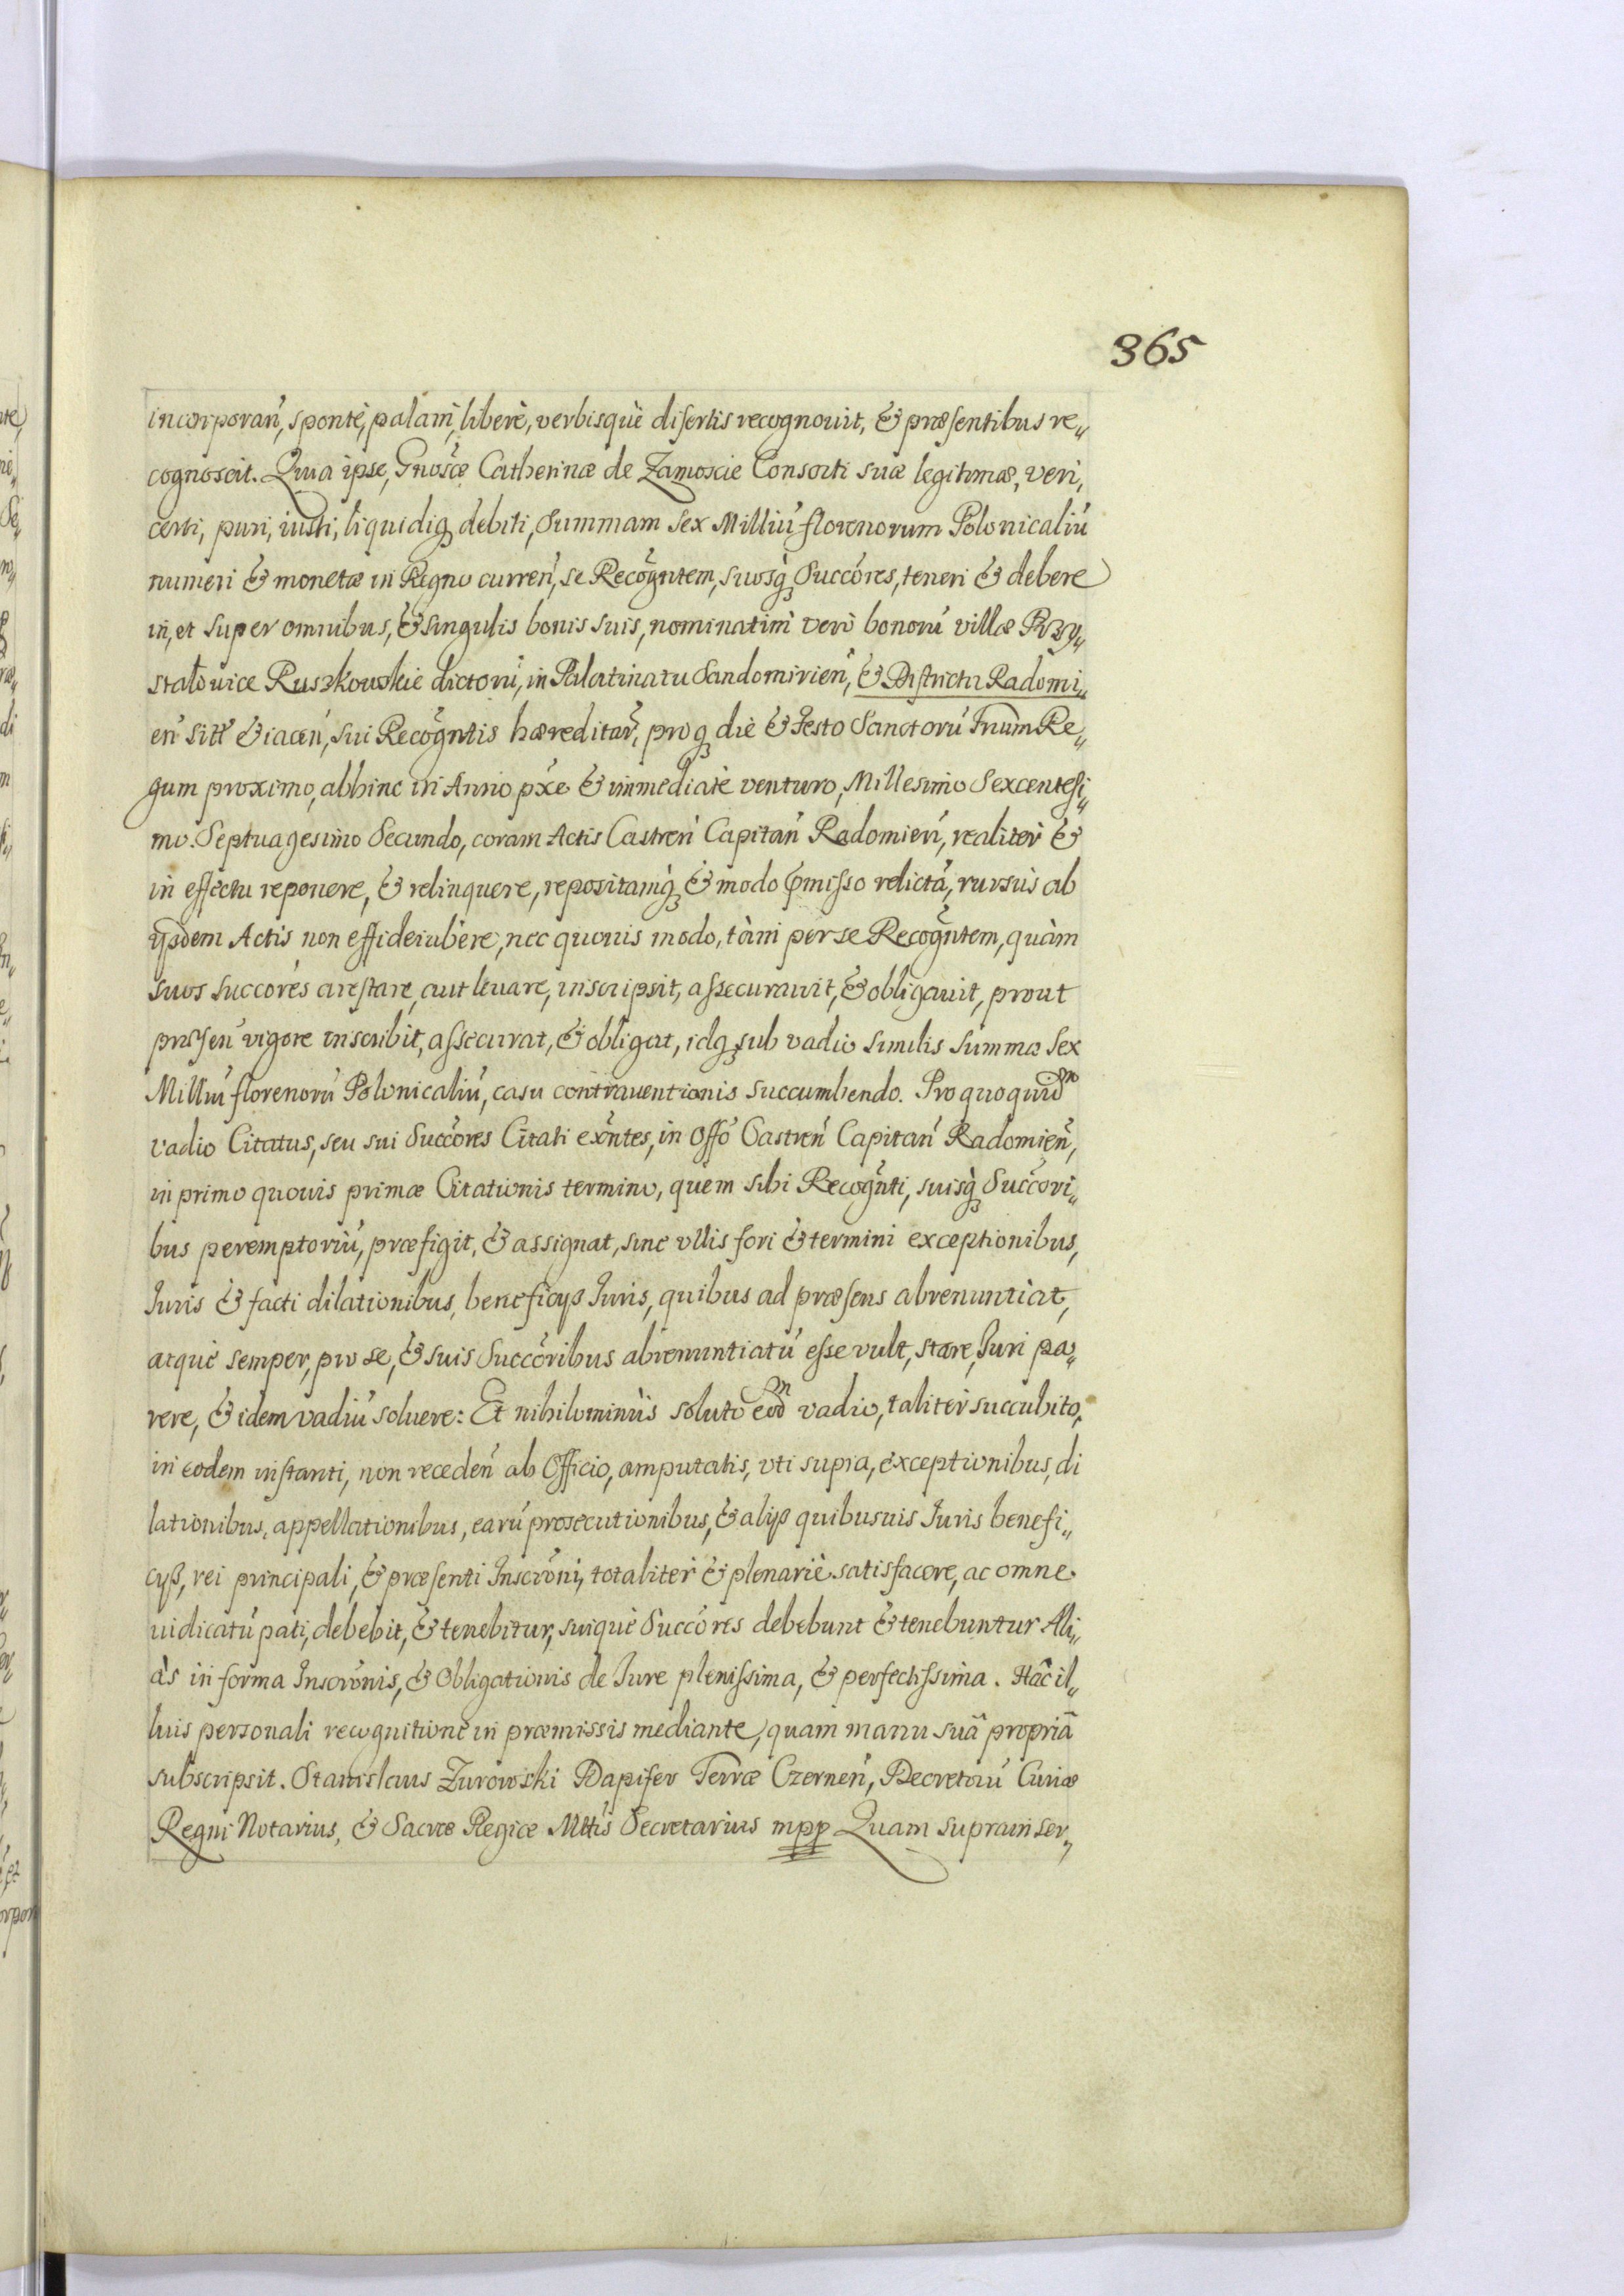 365
incorporań, sponte, palam, liberè, verbisquè disertis recognouit, & præsentibus re„
cognoscit. Qua ipse, Gnoscæ Catherinæ de Zamoscie Consorti suæ legitimæ, veri,
certi, puri, iusti, liquidiq; debiti, Summam Sex Milliú florenorum Polonicaliú
numeri & monetæ in Regno curreń, se Recogntem, suosq; Succóres, teneri & debere
in, et super omnibus, & singulis bonis suis, nominatim verò bonorú villæ Przy„
stałouice Ruszkowskie dictorú, in Palatinatu Sandomirień, & Districtu Radomi„
eń sitt & iaceń, sui Recogntis hæreditar, proq; die & Festo Sanctorú Trium Re„
gum proximo, abhinc in Anno pxe & immediatè venturo, Millesimo Sexcentesi„
mo Septuagesimo Secundo, coram Actis Castreń Capitań Radomień, realiter &
in effectu reponere, & relinquere, repositamq; & modo pmisso relictá, rursùs ab
ijsdem Actis non effideiubere, nec quouis modo, tàm per se Recogntem, quàm
suos succóres arestare, aut leuare, inscripsit, assecurauit, & obligauit, prout
præseń vigore inscribit, assecurat, & obligat, idq; sub vadio similis summæ Sex
Milliú florenorú Polonicaliú, casu contrauentionis succumbendo. Pro quoquidm
vadio Citatus, seu sui Succóres Citati exntes, in Offó Castreń Capitań Radomień,
in primo quouis primæ Citationis termino, quem sibi Recognti, suisq; Succóri„
bus peremptoriú, præfigit, & assignat, sine vllis fori & termini exceptionibus,
Iuris & facti dilationibus, beneficijs Iuris, quibus ad præsens abrenuntiat,
atquè semper, pro se, & suis Succóribus abrenuntiatú esse vult, stare, Iuri pa„
rere, & idem vadiú soluere: Et nihilominùs soluto eodm vadio, taliter succubito,
in eodem instanti, non recedeń ab Officio, amputatis, vti supra, exceptionibus, di
lationibus, appellationibus, earú prosecutionibus, & alijs quibusuis Iuris benefi„
cijs, rei principali, & præsenti Inscróni, totaliter & plenariè satisfacere, ac omne
iudicatú pati, debebit, & tenebitur, suiquè Succóres debebunt & tenebuntur Ali„
às in forma Inscrónis, & Obligationis de Iure plenissima, & perfectissima. Hâc il„
lius personali recognitione in præmissis mediante, quam manu suâ propriâ
subscripsit. Stanislaus Zurowski Dapifer Terræ Czerneń, Decretorú Curiæ
Regni Notarius, & Sacræ Regiæ Mttis Secretarius mpp Quam suprain ser„